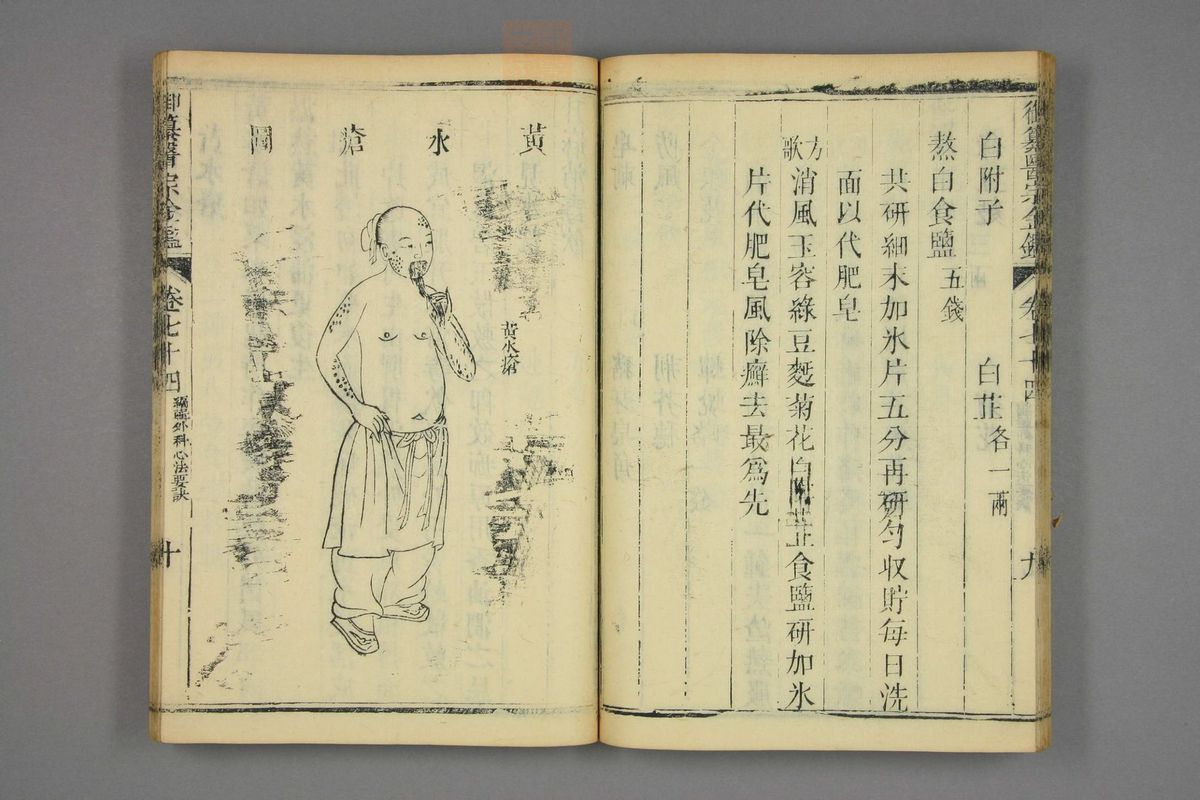 御纂醫宗金鑑
卷七十四
九
白附子
白芷各一兩
熬白食鹽五錢
共研細末加氷片五分再研勻收貯每日洗
面以代肥皂
方歌
消風玉容綠豆麪菊花白附芷食鹽研加氷
片代肥皂風除癬去最為先
黃水瘡圖
黃水瘡
御纂醫宗金鑑
卷七十四
編輯外科心法要訣
十